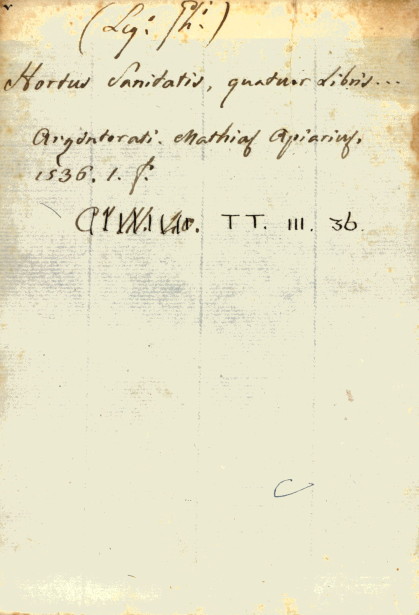 (Leg: Ph:)
Hortus Sanitatis, quatuor Libris...
Argentorati. Mathias Apiarius.
1536. 1. f.
TT. III. 36